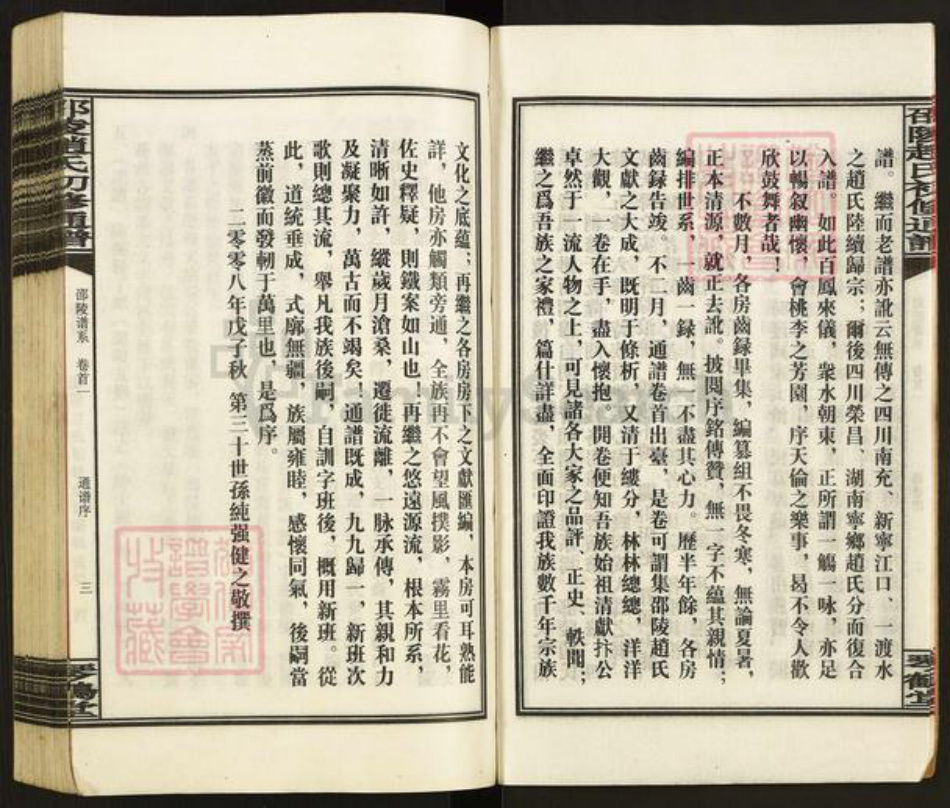 譜。繼而老譜亦訛云無傳之四川南充、新寧江口、一渡水
之趙氏陸續歸宗；爾後四川榮昌、湖南寧鄉趙氏分而復合
入譜。如此百鳳來儀，衆水朝東，正所謂一觴一咏，亦足
以暢叙幽懷，會桃李之芳園，序天倫之樂事，曷不令人歡
欣鼓舞者哉！
不數月，各房齒録畢集，編纂組不畏冬寒，無論夏暑，
正本清源，就正去訛。披閱序銘傳贊，無一字不蘊其親情；
編排世系，一齒一録，無一不盡其心力。歷半年餘，各房
齒録告竣，不二月，通譜卷首出臺，是卷可謂集邵陵趙氏
文獻之大成，既明于條析，又清于縷分，林林總總，洋洋
大觀，一卷在手，盡入懷抱。開卷便知吾族始祖清獻抃公
卓然于一流人物之上，可見諸各大家之品評、正史、軼聞；
繼之爲吾族之家禮，篇什詳盡，全面印證我族數千年宗族
邵陵趙氏初修通譜
邵陵谱系 卷首一
通谱序
三
琴鶴堂
文化之底蘊；再繼之各房房下之文獻匯編，本房可耳熟能
詳，他房亦觸類旁通，全族再不會望風撲影，霧里看花，
佐史釋疑，則鐵案如山也！再繼之悠遠源流，根本所系，
清晰如許，縱歲月滄桑，遷徙流離，一脉承傳，其親和力
及凝聚力，萬古而不竭矣！通譜既成，九九歸一，新班次
歌則總其流，舉凡我族後嗣，自訓字班後，概用新班。從
此，道統垂成，式廓無疆，族屬雍睦，感懷同氣，後嗣當
蒸前徽而發軔于萬里也，是爲序。
二零零八年戊子秋 第三十世孫純强健之敬撰